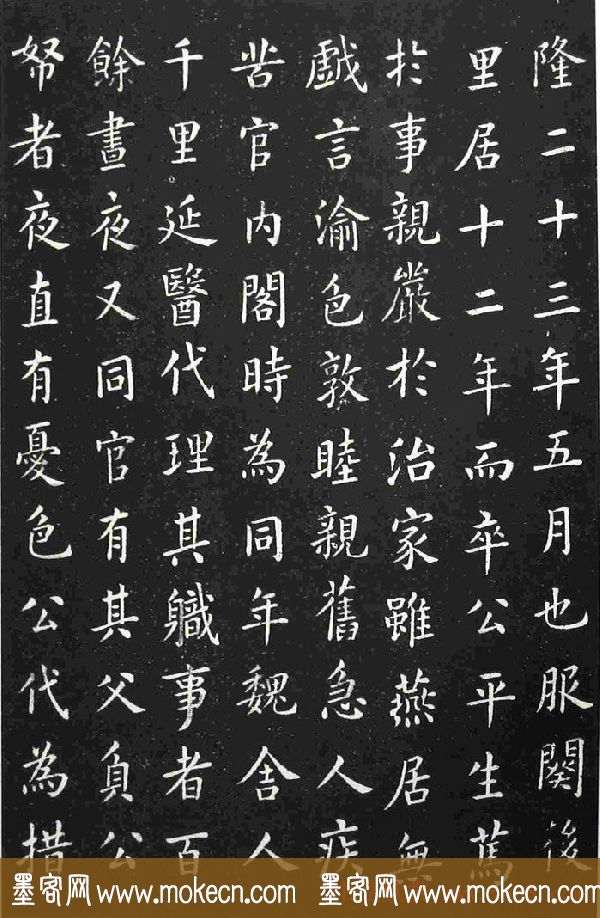 隆二十三年五月也服闋後
里居十二年而卒公平生篤
於事親嚴於治家雖燕居無
戲言渝色敦睦親舊急人疾
苦官內閣時為同年魏舍人
千里延醫代理其職事者百
餘晝夜又同官有其父負公
帑者夜直有憂色公代為措
墨客网 www.mokecn.com 墨客网 www.mokecn.com